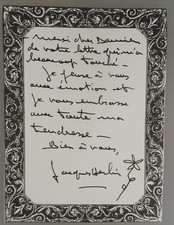 merci cher Damien
de votre lettre qui m'a
beaucoup touché -
Je pense à vous
avec émotion et
je vous embrasse
avec toute ma
tendresse -
Bien à vous,
Jacques